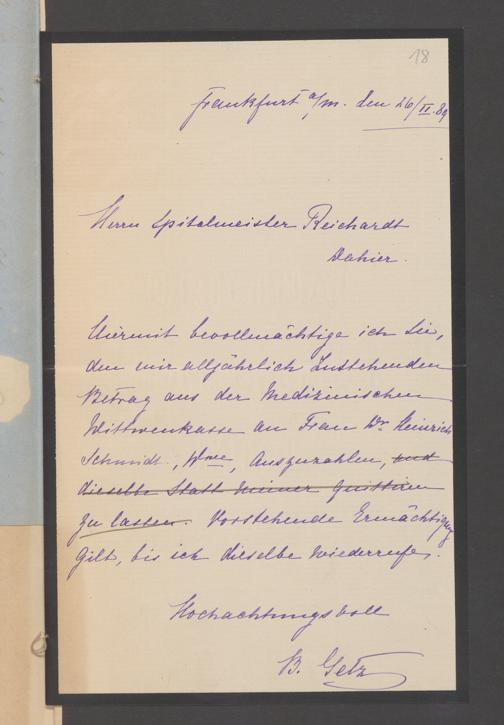 18
Frankfurt a/m. den 26/II.89
Herrn Spitalmeister Reichardt
Dahier.
Hiermit bevollmächtige ich Sie,
den mir alljährlich Zustehenden
Betrag aus der Medizinischen
Wittwenkasse an Frau Dr Heinrich
Schmidt, Wwe, Auszuzahlen, und
dieselbe Statt meiner quittiren
zu lassen. Vorstehende Ermächtigung
gilt, bis ich dieselbe wiederrufe.
Hochachtungsvoll
B. Getz